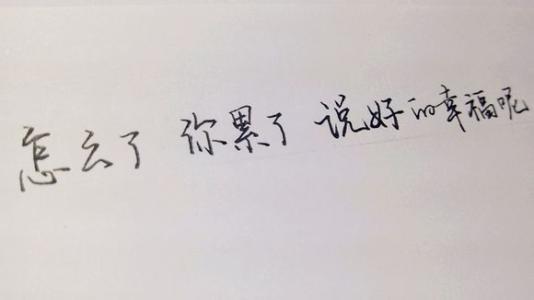 怎么了 你累了 说好的幸福呢